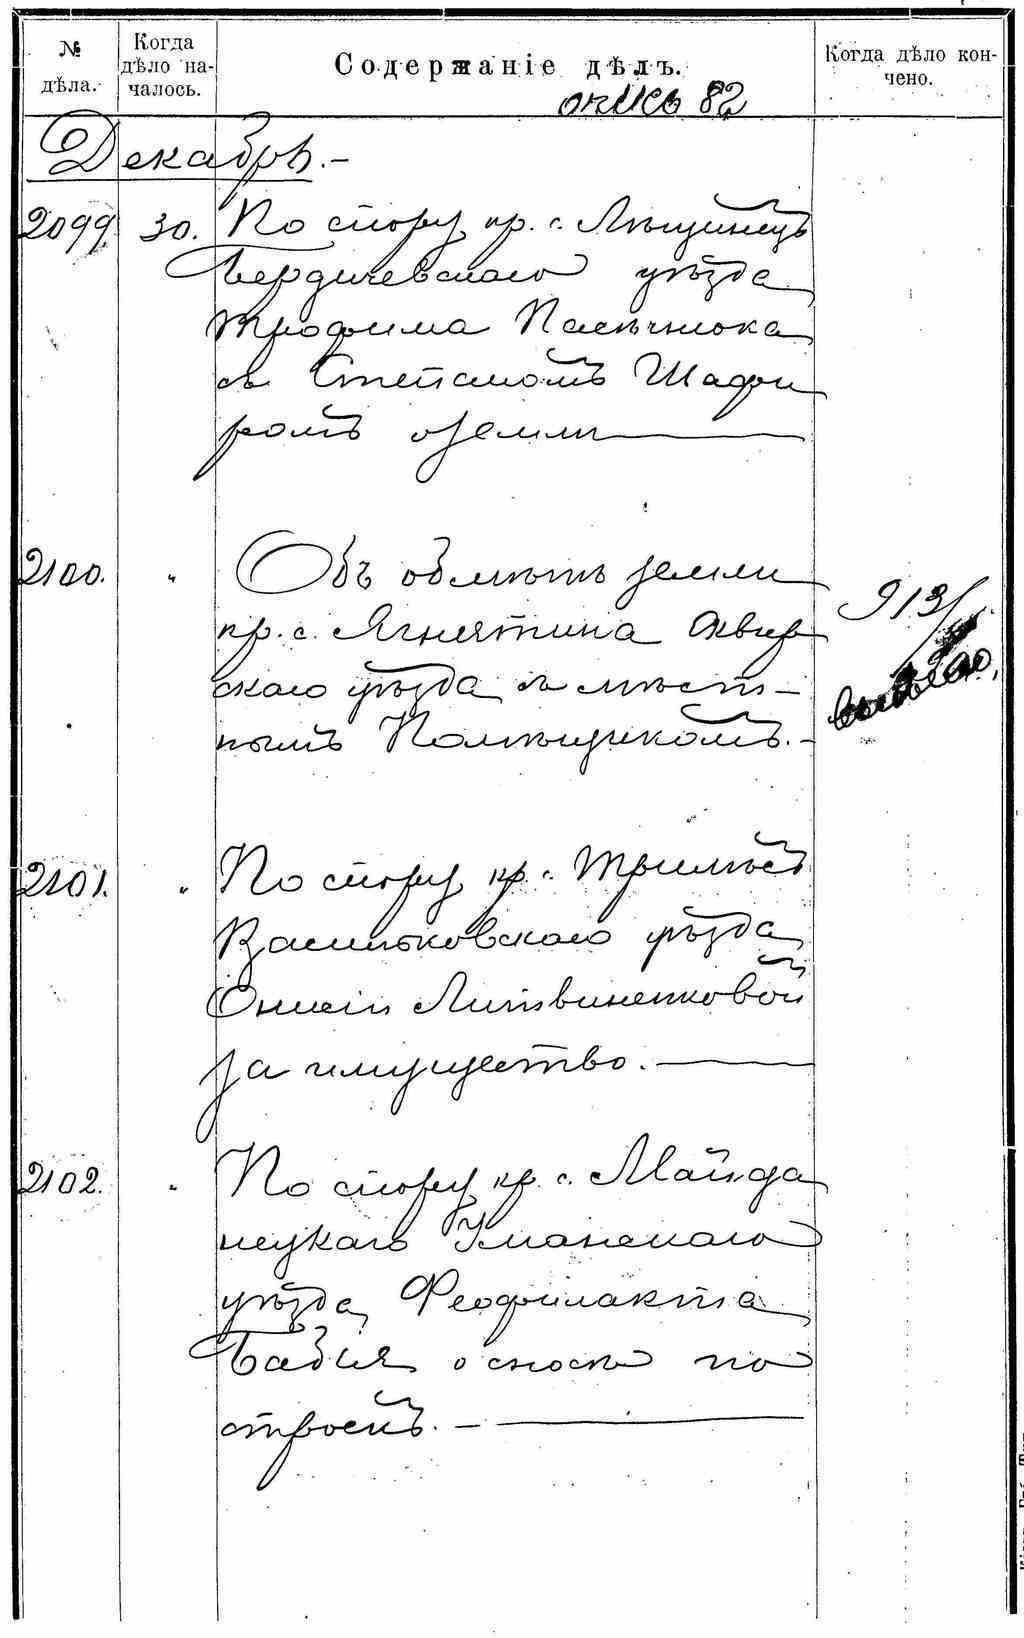 № дѣла.
Когда дѣло на-чалось.
Содержаніе дѣлъ.
Когда дѣло кон-чено.
опись 82
Декабрь.-
2099. 30. По спору кр. с. Лѣщинецъ
Бердичевскаго уѣзда
Трофима Пасѣчнюка
съ Степаномъ Шафи
ромъ о землѣ
2100. " Объ обмѣнѣ земли
кр. с. Ягнятина Сквир
скаго уѣзда съ мѣст-
нымъ Помѣщикомъ.-
913/
выбыло,
2101. " По спору кр. с. Трилѣсъ
Васильковскаго уѣзда
Онисіи Литвиненковой
за имущество.
2102. " По спору кр. с. Майда
нецкаго Уманскаго
уѣзда Феофилакта
Бабія о сносѣ по
строекъ.-